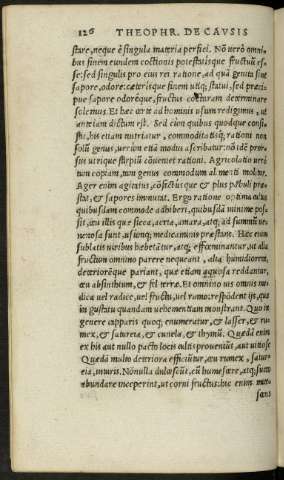 126 THEOPHR. DE CAVSIS
stare, neque è singula materia perfici. No verò omni-
bus finem eundem coctionis potestatisque fructuũ es-
se: sed singulis pro eius rei ratione, ad quã genita sint
sapore, odore: cæterisque finem utiq; statui, sed præci-
pue sapore odoréque, fructus cocturam determinare
solemus. Et hæc certe ad hominis usum redigimus, ut
antedictum est. Sed eum quibus quodque consi-
stit, his etiam nutriatur, commoditatisq; rationi non
solũ genus, uerùm etiã modus ascribatur: nõ idẽ pror-
sus utrique stirpiũ cõuenit rationi. Agricolatio uerì
tum copiam, tum genus commodum
Ager enim agitatus, cõsistusque & plus pabuli præ-
stat, & sapores immutat. Ergo ratione optima cultus
quibusdam commode adhiberi, quibusdã minime pos-
sit, ceu illis quæ sicca, acria, amara, atq; ad summũ ue-
nenosa sunt, usumq; medicaminis præstant. Hæc enim
sublatis uiribus hebetãtur, atq; effœminantur, ut alia
fructum omnino parere nequeant, alia humidiorem,
deterioréque pariant, quæ etiam aquosa reddantur,
ceu absinthium, & fel terræ. Et omnino uis omnis me-
dica uel radice, uel fructu, uel ramo: respõdent ijs, quæ
in gustatu quandam uehementiam monstrant. Quo in
genere capparis quoq; enumeratur, & lasser, & ru-
mex, & satureia, & cunela, & thymũ. Quædã enim
ex his aut nullo pacto locis cultis proueniũt, aut uitiose
Quædã multo deteriora efficiũtur, ceu rumex, satur-
eia, muris. Nõnulla dulcescũt, cũ humefacere, atq; suco
abundare inceperint, ut corni fructus: hic enim mitte-
scens